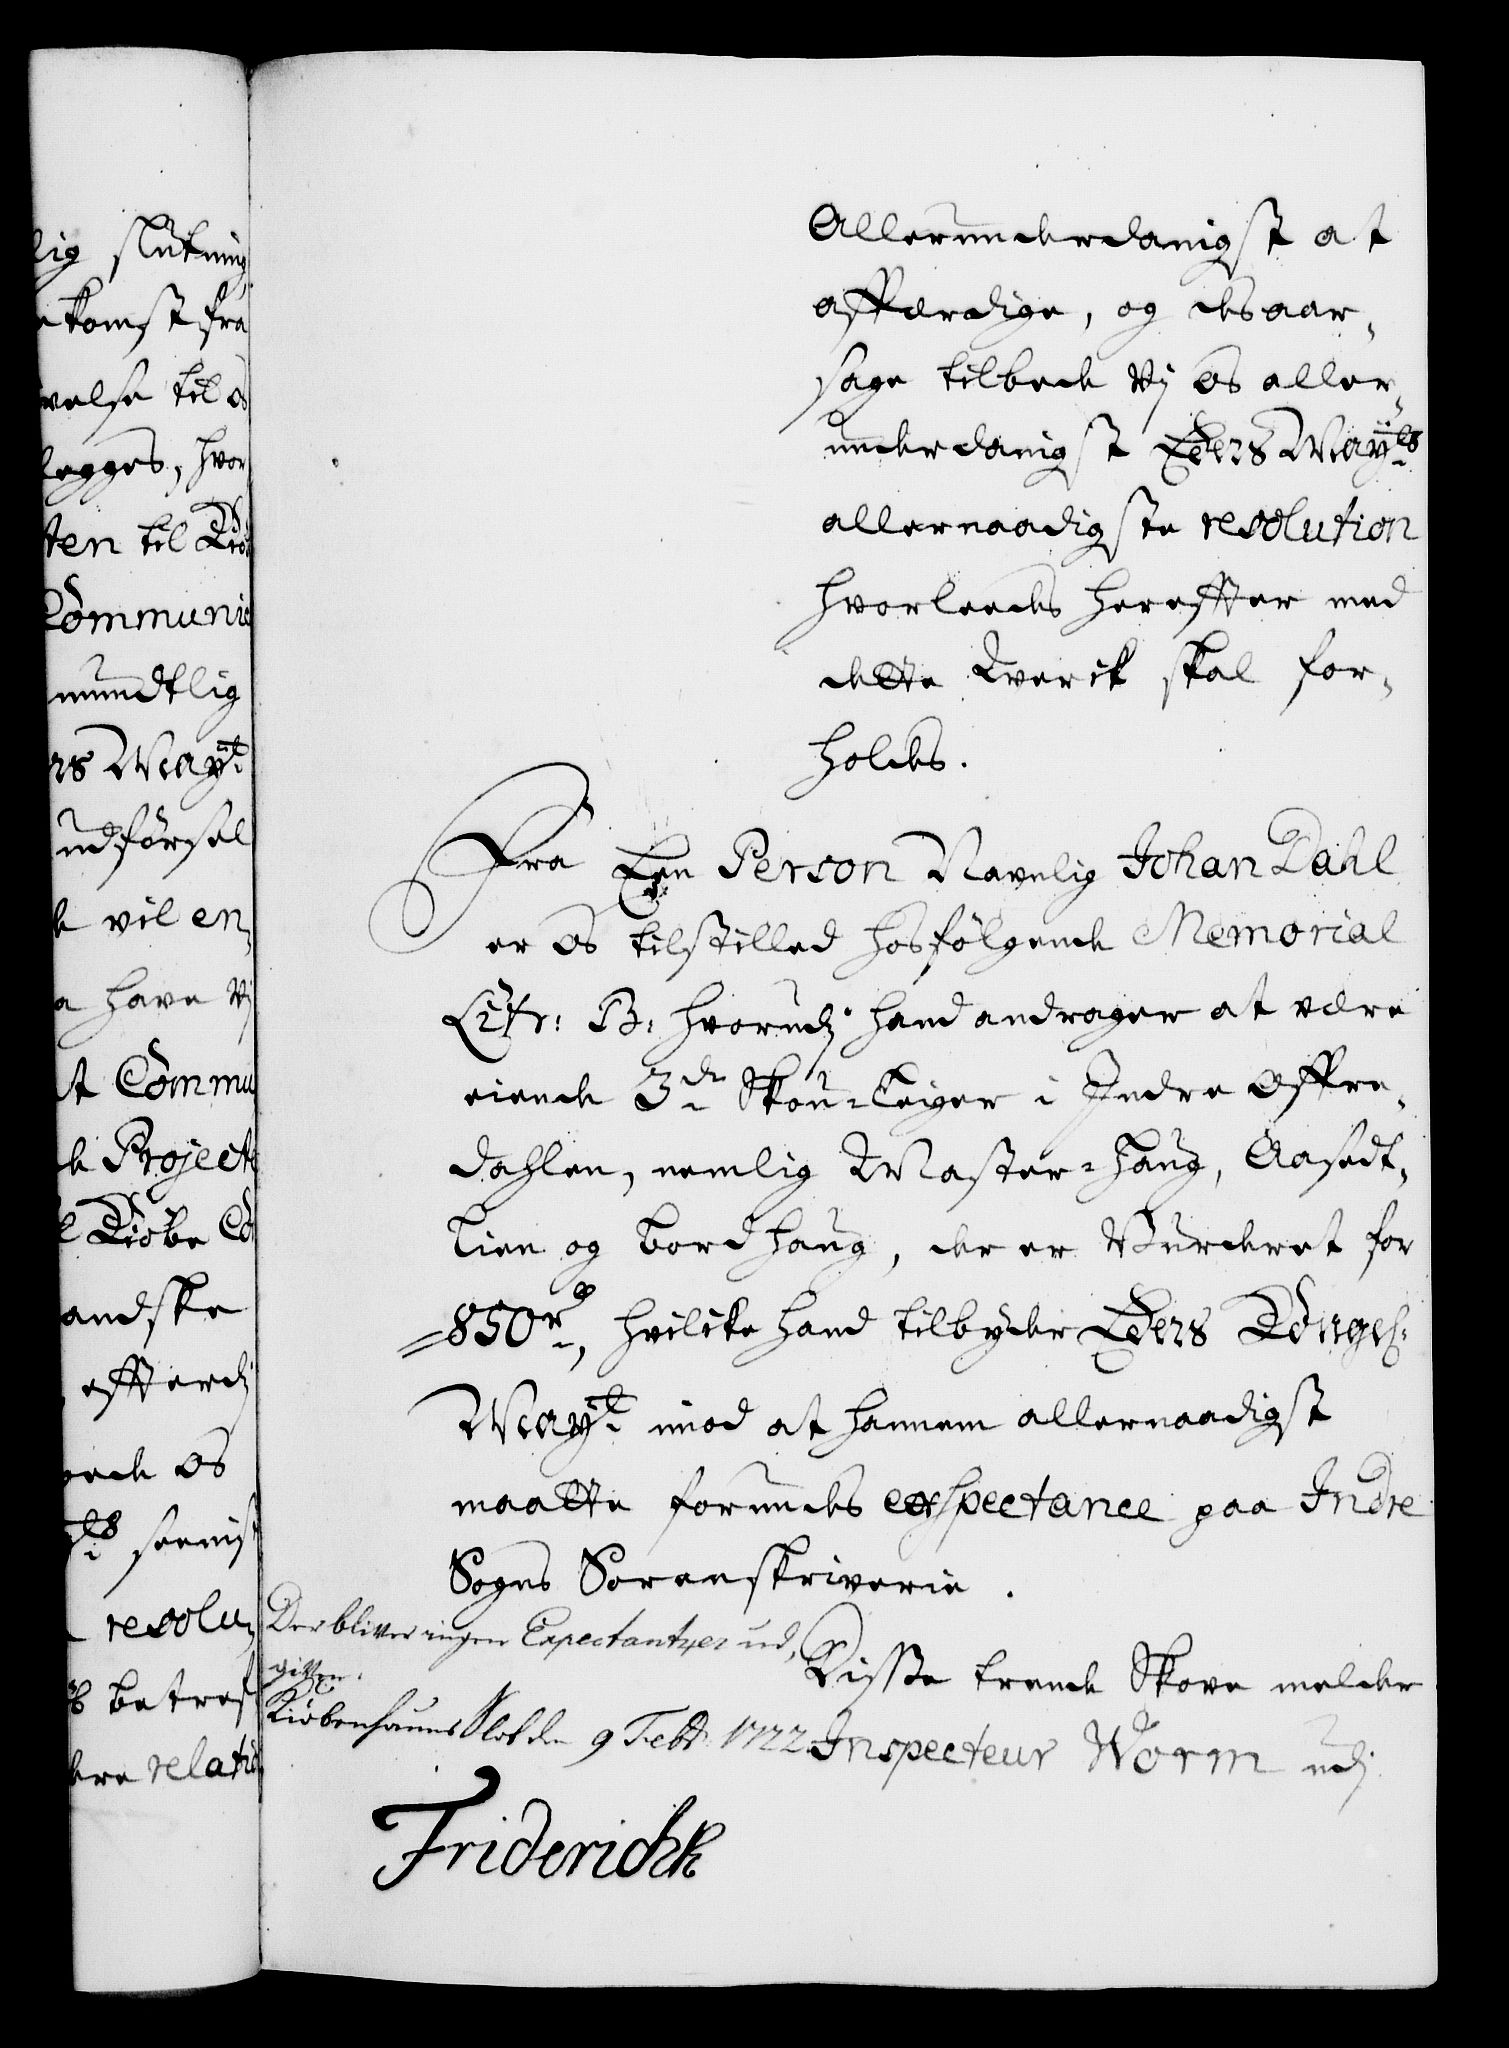 lig slutning
komst fra
velse til os
legges, hvor
ten til Kiø
Communi
mundtlig
rs Mayt
udførsel
vil en,
a have Vj
t Commu
de Project
Kiøbe Co
andske
efferdj
os
resolu,
betref
relati
Allerunderdanigst at
affærdige, og desaar,
sage tilbede Vj os aller,
underdanigst Eders Mayts
allernaadigste resolution
hvorleedes herefter med
dette Qverck skal for,
holdes.
Fra Een Person Navnlig Johan Dahl
er os tilstilled hosfølgende Memorial
Litr: B: hvorudj hand andrager at være
eiende 3de Skou-Teyger i Indre Offre,
dahlen, nemlig Master-Haug, Aasedt,
lien og Bordhaug, der er Vurderet for
850 rd, hvilcke hand tilbyder Eders Konges:
Mayt imod at hannem allernaadigst
maatte forundes exspectance paa Indre
Sogns Sorenskriverie.
Der bliver ingen Expectantzer ud,
given.
Kiøbenhauns Slot den 9 Febr 1722.
Friderich R
Disse trende Skove melder
Inspecteur Worm udj